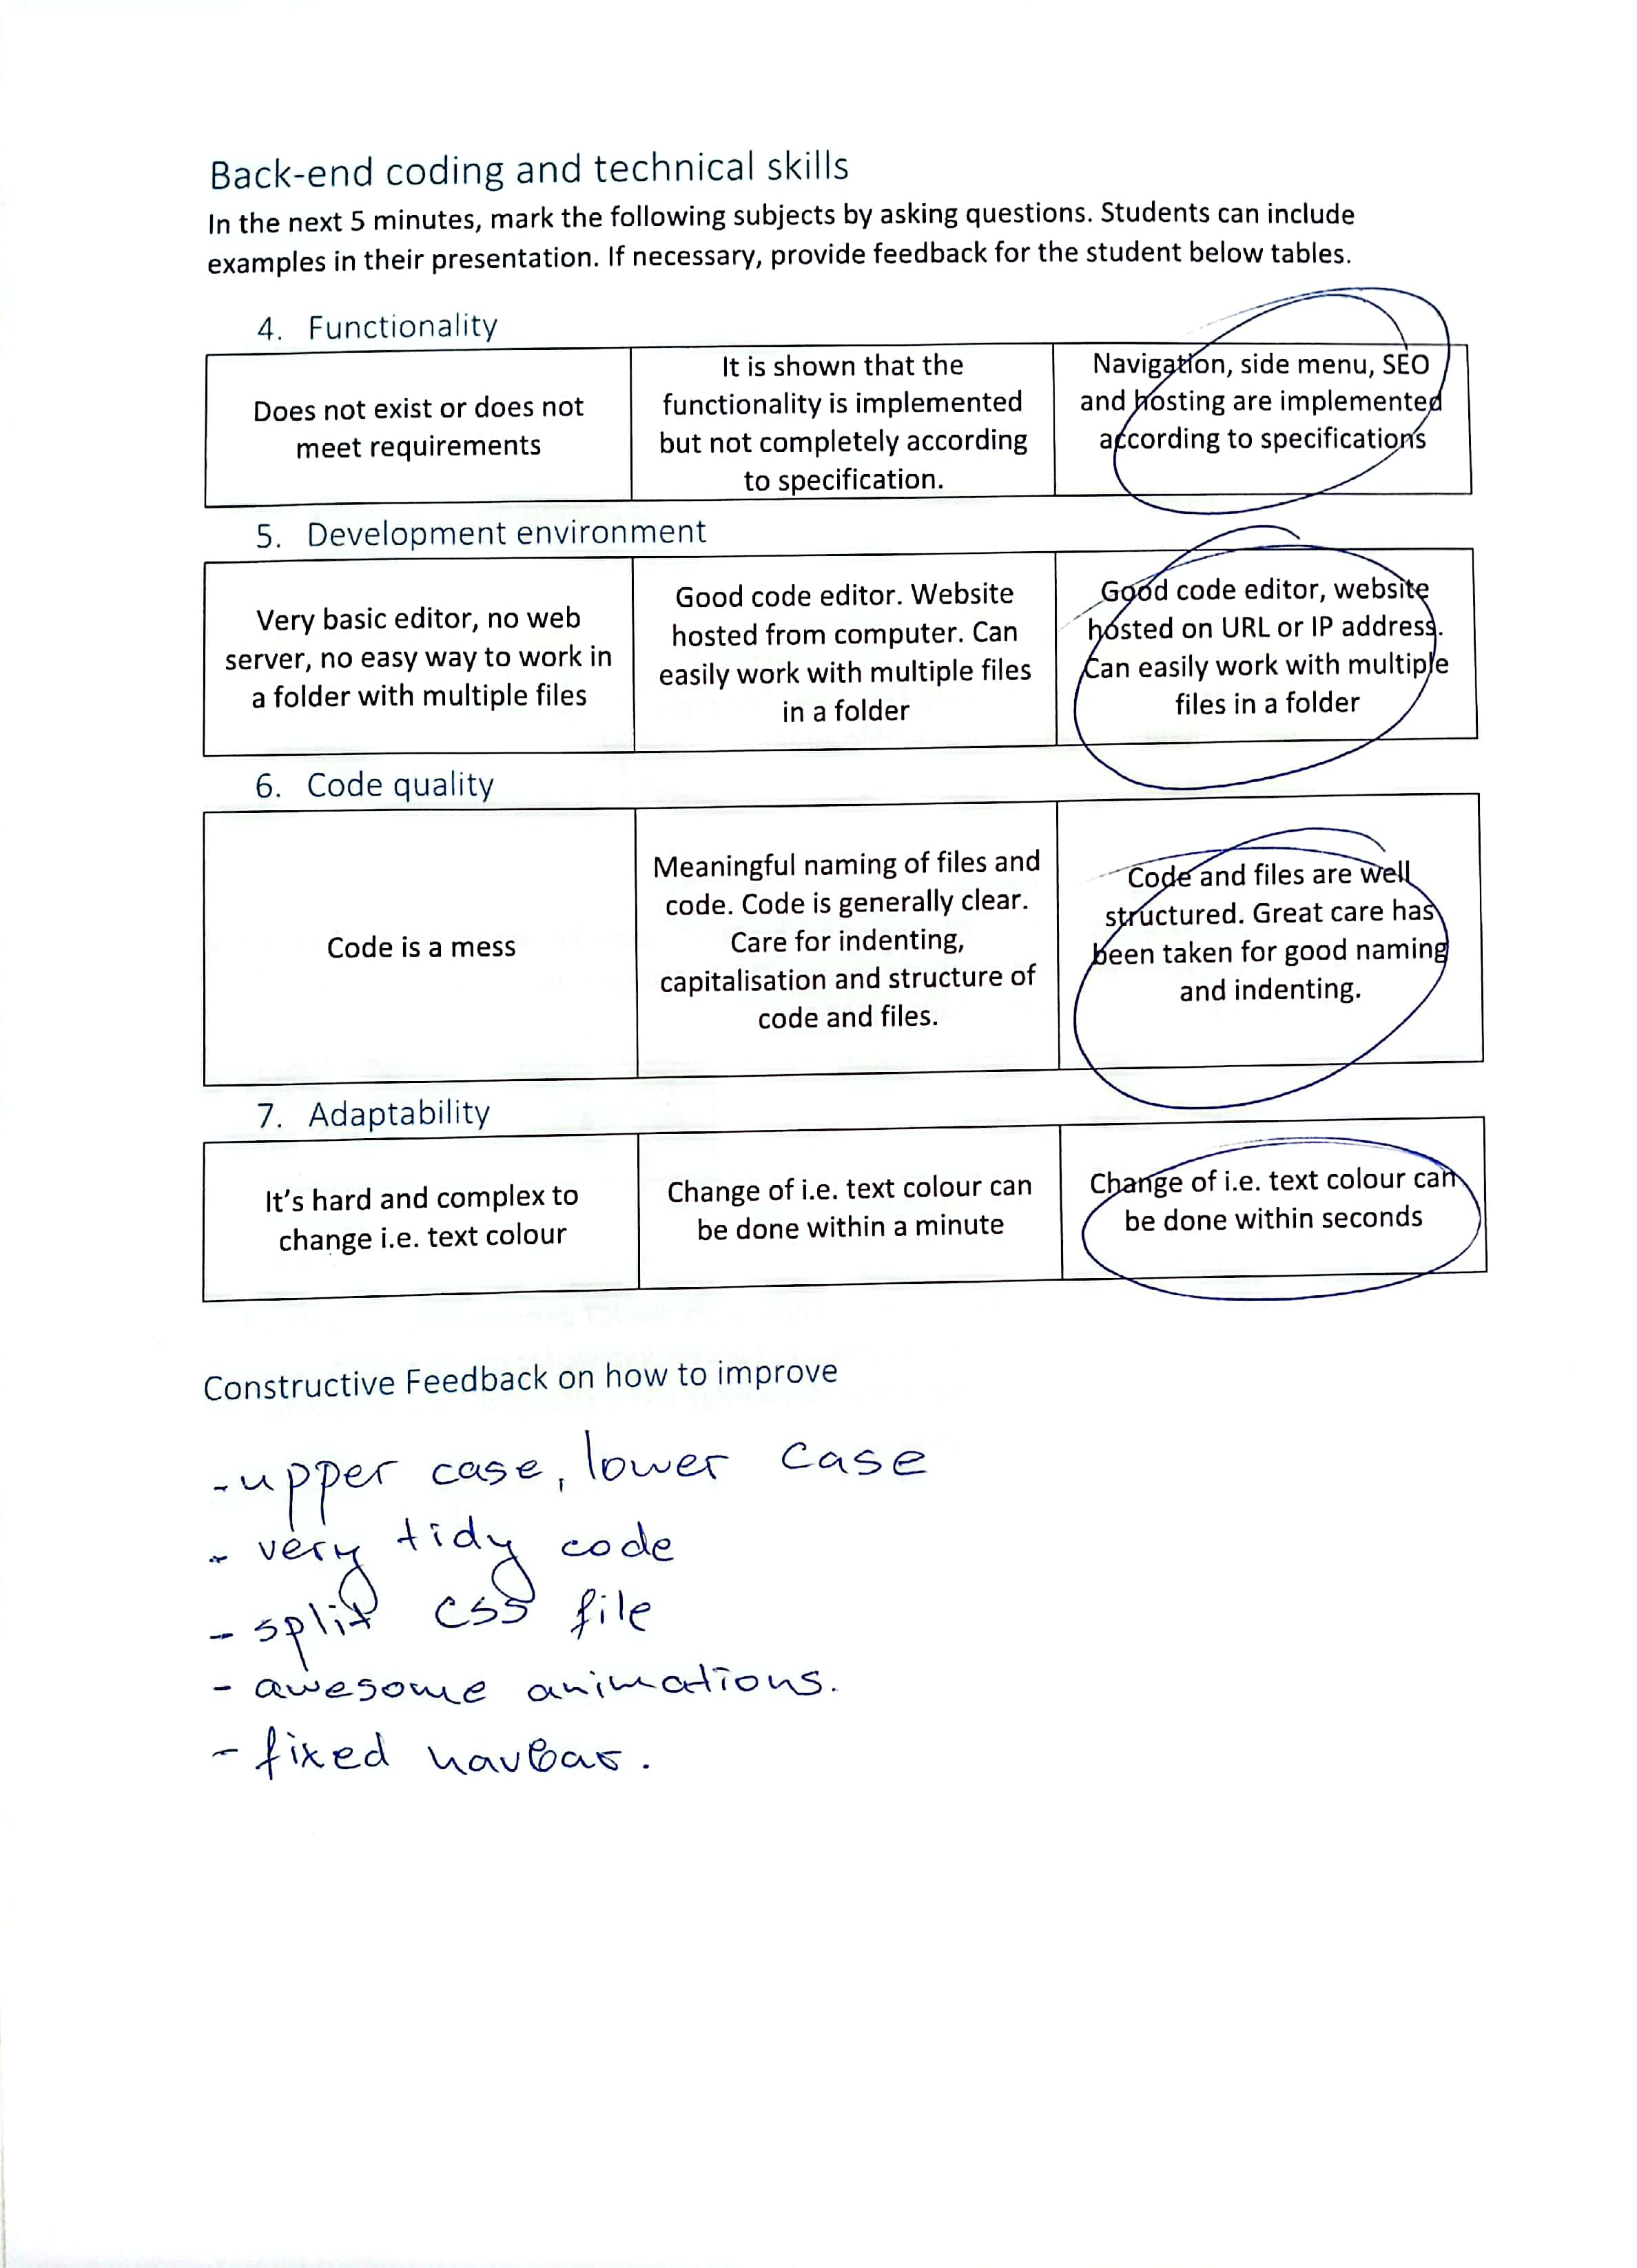 Back-end coding and technical skills
In the next 5 minutes, mark the following subjects by asking questions. Students can include
examples in their presentation. If necessary, provide feedback for the student below tables.
4. Functionality
Does not exist or does not
meet requirements
It is shown that the
functionality is implemented
but not completely according
to specification.
Navigation, side menu, SEO
and hosting are implemented
according to specifications
5. Development environment
Very basic editor, no web
server, no easy way to work in
a folder with multiple files
Good code editor. Website
hosted from computer. Can
easily work with multiple files
in a folder
Good code editor, website
hosted on URL or IP address.
Can easily work with multiple
files in a folder
6. Code quality
Code is a mess
Meaningful naming of files and
code. Code is generally clear.
Care for indenting,
capitalisation and structure of
code and files.
Code and files are well
structured. Great care has
been taken for good naming
and indenting.
7. Adaptability
It's hard and complex to
change i.e. text colour
Change of i.e. text colour can
be done within a minute
Change of i.e. text colour can
be done within seconds
Constructive Feedback on how to improve
- upper case, lower case
- very tidy code
- split css file
- awesome animations.
- fixed navbar.